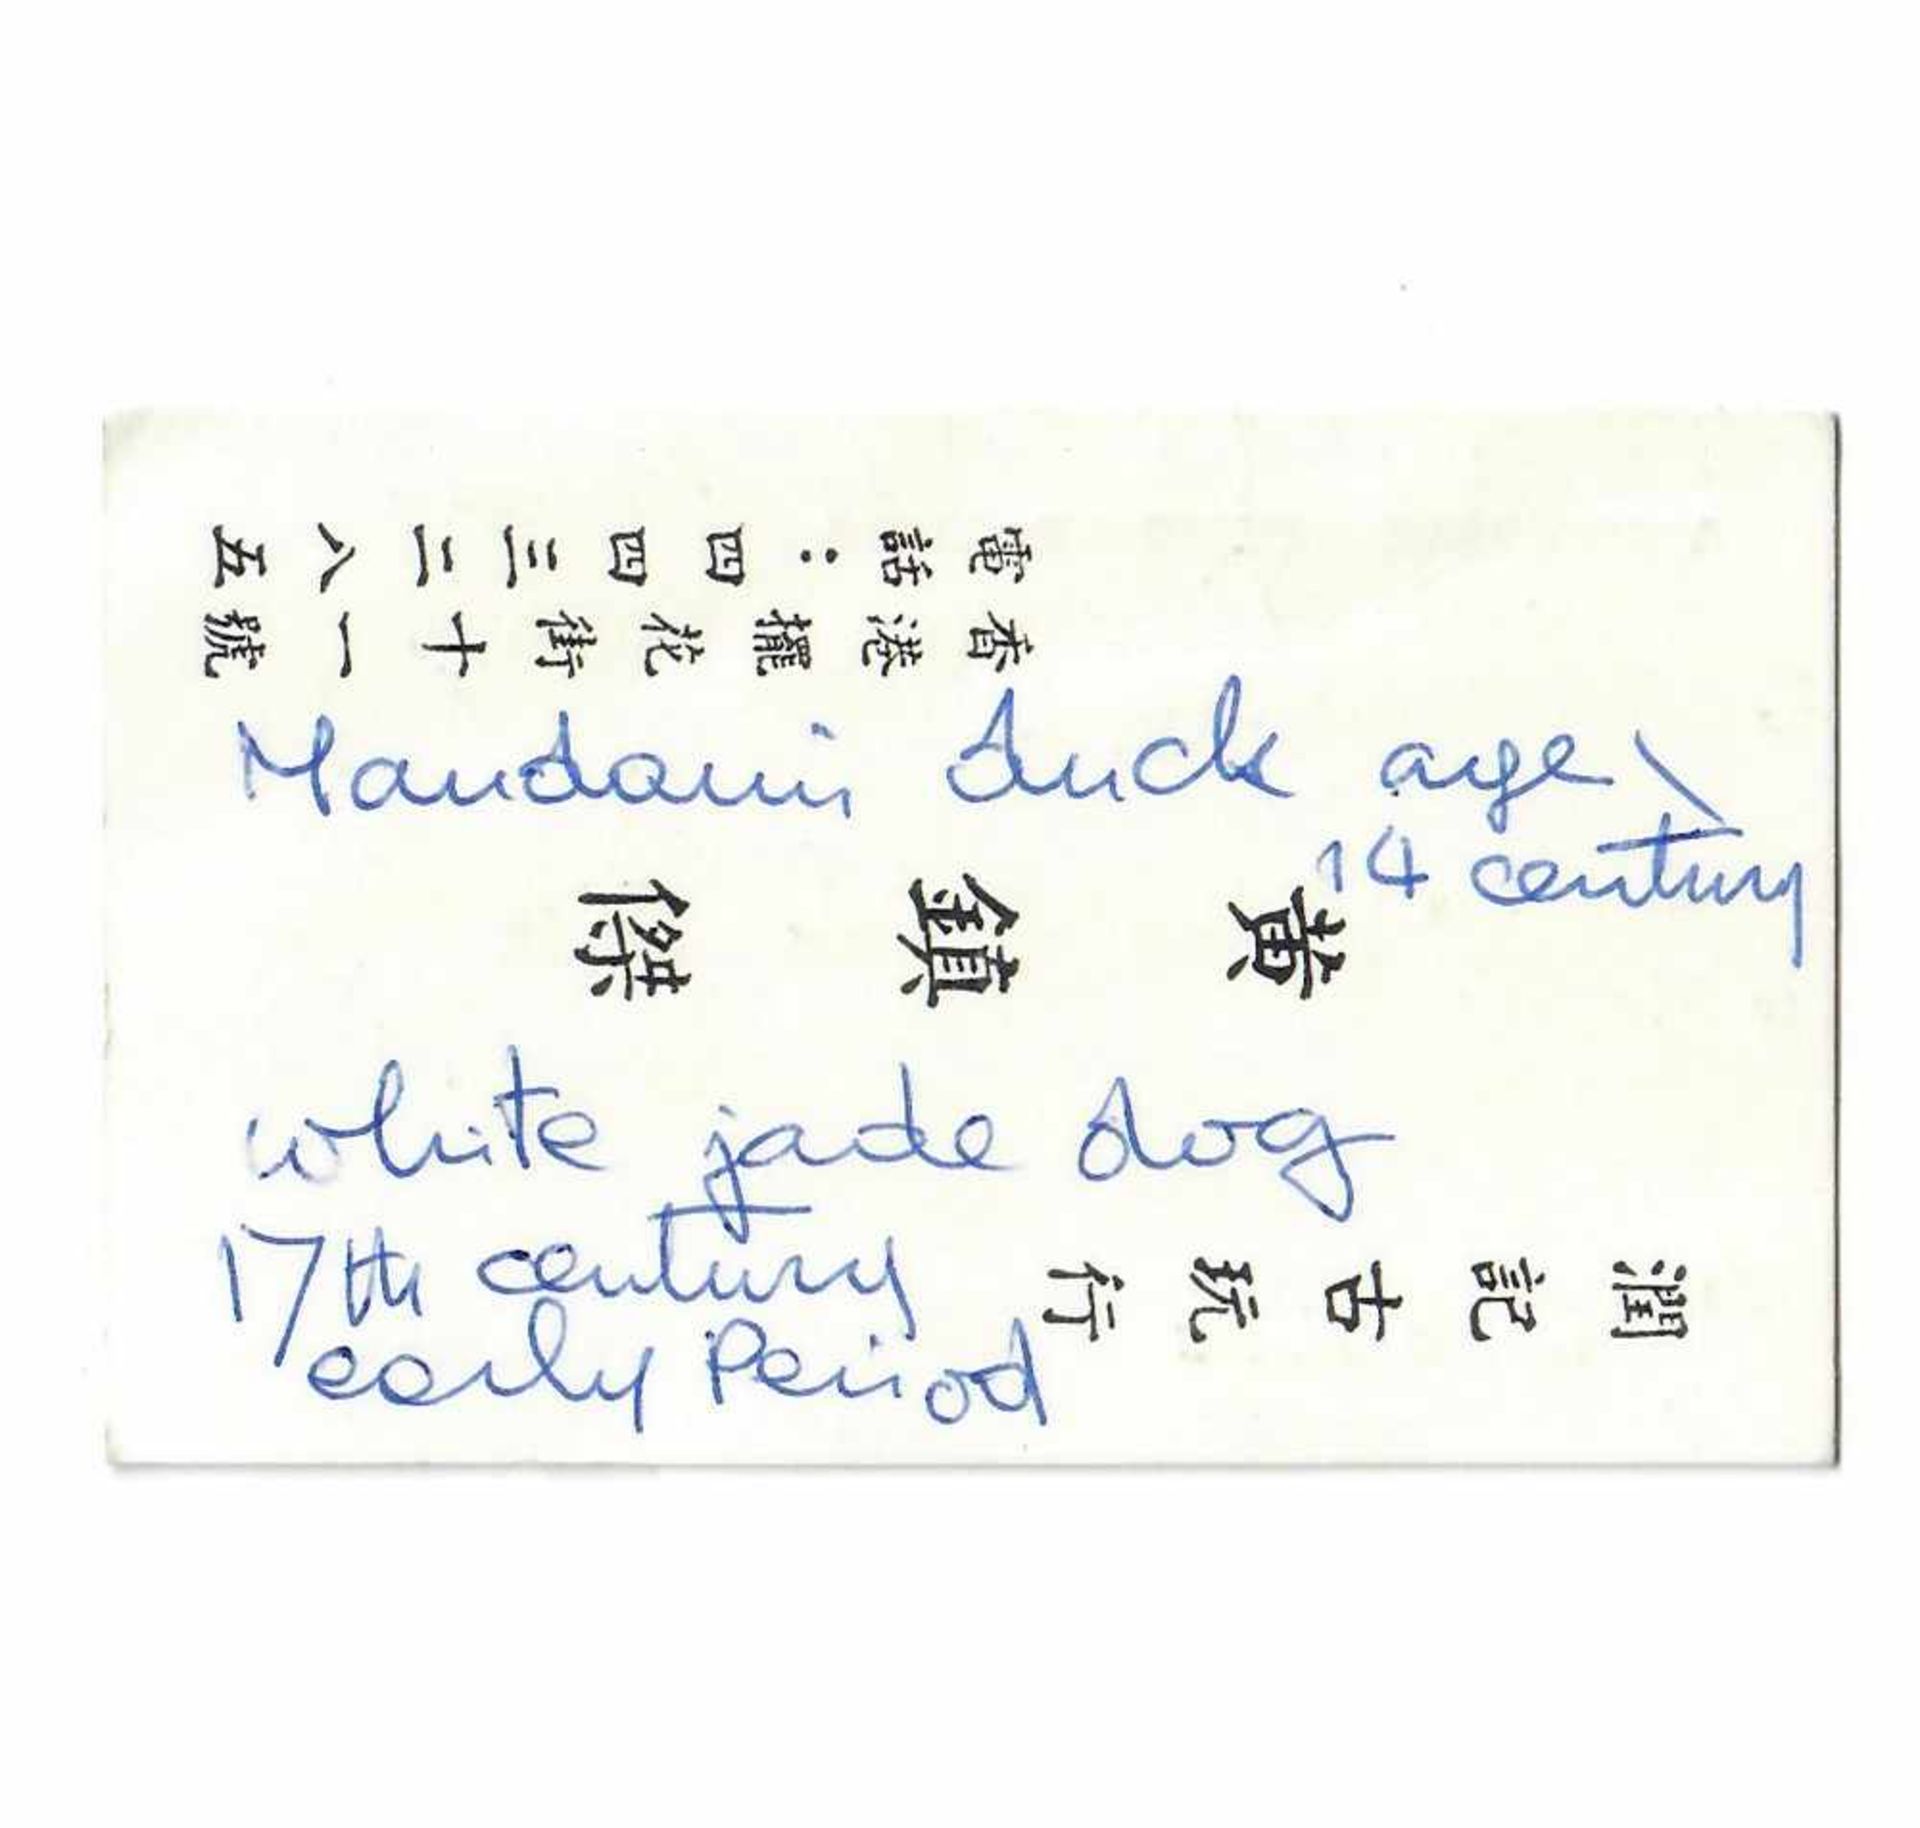 潤記古玩行
黃鎮傑
香港擺花街十一號
電話：四四三二八五
Mandarin duck age
14 century
white jade dog
17th century
early Period